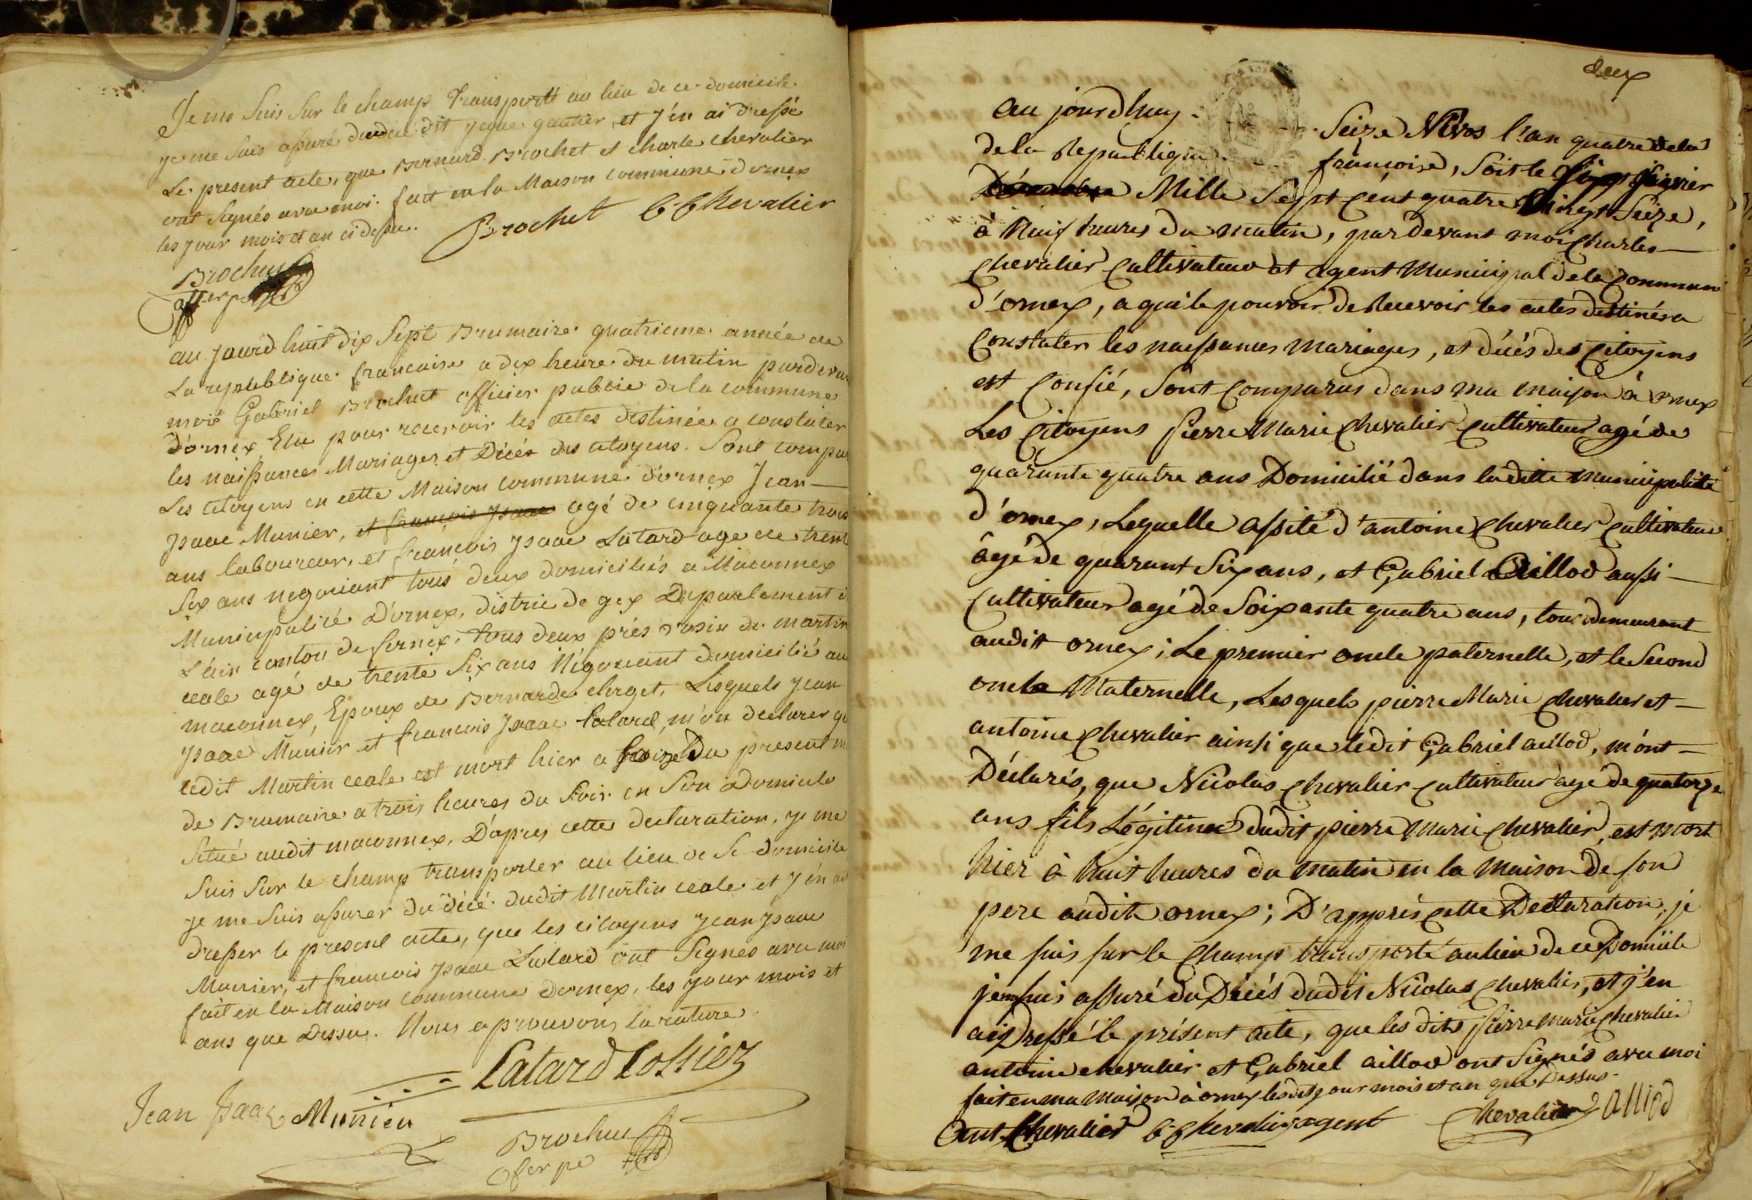 Je me suis sur le champ transporté au lieu de ce domicile
je me suis assuré du décé dudit gautier, et j'en ai dressé
Le present acte, que Bernard Brochet et charle chevalier
ont signés avec moi. fait en la Maison commune d'ornex
les jour mois et an ci dessu.
Brochet CC Chevalier
Brochu
au jourd huit dix sept Brumaire quatrieme année de
La republique francaise a dix heure du matin pardeva
moi Gabriel Brochut officier public de la commune
D'ornex Elu pour recevoir les actes destinée a constater
les naissances Mariages et Décés des citoyens. Sont compa
Les citoyens en cette Maison commune d'ornex Jean
Isaac Munier, et francois Isaac agé de cinquante trois
ans laboureur, et francois Isaac Latard age de trent
six ans negociant tous deux domiciliés a Maconnex
Municipalité D'ornex, distric de gex Departement d
L'ain canton de fernex, tous deux prés voisin de martin
ceale agé de trente six ans Négociant domicilié au
maconnex, Epoux de Bernarde clerget, Lesquels jean
Isaac Munier et francois Isaac Latard, m'on declarer q
ledit Martin ceale est mort hier a seize Du present m
de Brumaire a trois heures du soir en son Domicile
situé audit maconnex, D'apres cette declaration, je me
suis sur le champ transporter au lieu de se domicile
je me suis assurer du décé dudit Martin ceale et j'en ai
dresser le present acte, que les citoyens jean Isaac
Munier, et francois Isaac Latard ont signés avec moi
fait en la Maison commune d'ornex, les jour mois et
ans que Dessu. Nous aprouvons la rature.
Latard
Jean Isaac Munier
Brochu
deux
au jourd'huy Seize Nivos l'an quatre de la
de la Republique francoise, soit le six janvier
Décembre Mille Sept cent quatre Vingt Seize,
à huit heures du matin, pardevant moi Charles
chevalier Cultivateur et agent Municipal de la Commune
d'ornex, a qui le pouvoir de Recevoir les actes destinés a
Constater les naissances mariages, et décés des Citoyens
est Confié, sont Comparus dans ma maison à ornex
Les Citoyens pierre Marie Chevalier Cultivateur agé de
quarante quatre ans Domicilié dans ladite Municipalité
d'ornex, Lequelle assité d'antoine Chevalier Cultivateur
âgé de quarant Six ans, et Gabriel Aillod aussi
Cultivateur agé de Soixante quatre ans, tous demeurant
audit ornex; Le premier oncle paternelle, et le Second
oncle Maternelle, Lesquels pierre Marie Chevalier et
antoine Chevalier ainsi que ledit Gabriel aillod, m'ont
Déclarés, que Nicolas Chevalier Cultivateur agé de quatorze
ans fils Légitime dudit pierre Marie Chevalier, est mort
hier à huit heures du matin en la Maison de son
pere audit ornex; D'apprés cette Declaration, je
me suis sur le Champs transporté au lieu de ce Domicile
j'em suis assuré du Décés dudit Nicolas Chevalier, et j'en
ai Dressé le présent acte, que les dits pierre marie Chevalier
antoine chevalier et Gabriel aillod ont Signés avec moi
fait en ma maison à ornex les dits jour mois et an que Dessus.
Ant. Chevalier CC Chevalier agent Chevalier Alliod